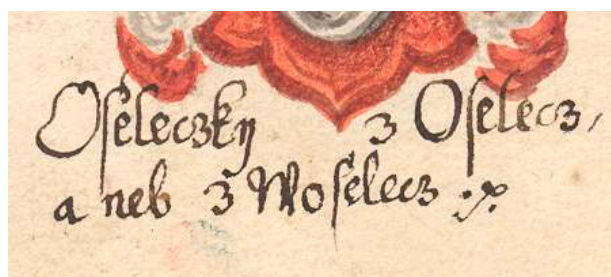 Oſeleczky z Oſelecz,
a neb z Woſelecz